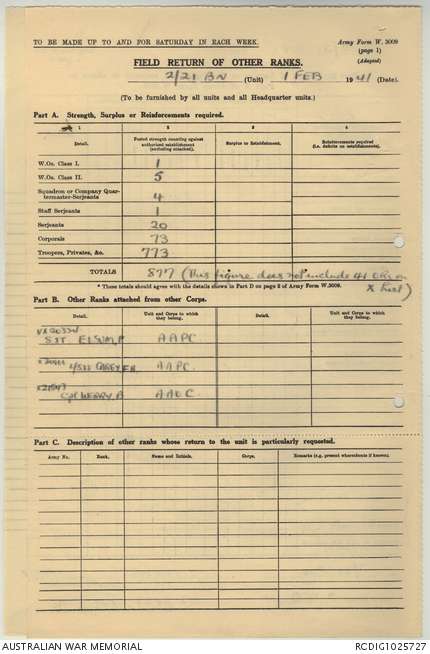 TO BE MADE UP TO AND FOR SATURDAY IN EACH WEEK.
Army Form W. 3009
(page 1)
(Adapted)
FIELD RETURN OF OTHER RANKS.
2/21 BN (Unit) 1 FEB 1941 (Date).
(To be furnished by all units and all Headquarter units.)
Part A. Strength, Surplus or Reinforcements required.
1 2 3 4
Detail. Posted strength counting against authorized establishment (excluding attached). Surplus to Establishment. Reinforcements required (i.e. deficits on establishments).
W.Os. Class I. 1
W.Os. Class II. 5
Squadron or Company Quar-
termaster-Serjeants 4
Staff Serjeants 1
Serjeants 20
Corporals 73
Troopers, Privates, &c. 773
TOTALS 877 (This figure does not include 41 ORs on
X list)
* These totals should agree with the details shown in Part D on page 2 of Army Form W.3009.
Part B. Other Ranks attached from other Corps.
Detail. Unit and Corps to which they belong. Detail. Unit and Corps to which they belong.
SJT ELSUM, P AAPC
AAPC
Cpl WERRY, B AAOC
Part C. Description of other ranks whose return to the unit is particularly requested.
Army No. Rank. Name and Initials. Corps. Remarks (e.g. present whereabouts if known).
AUSTRALIAN WAR MEMORIAL
RCDIG1025727